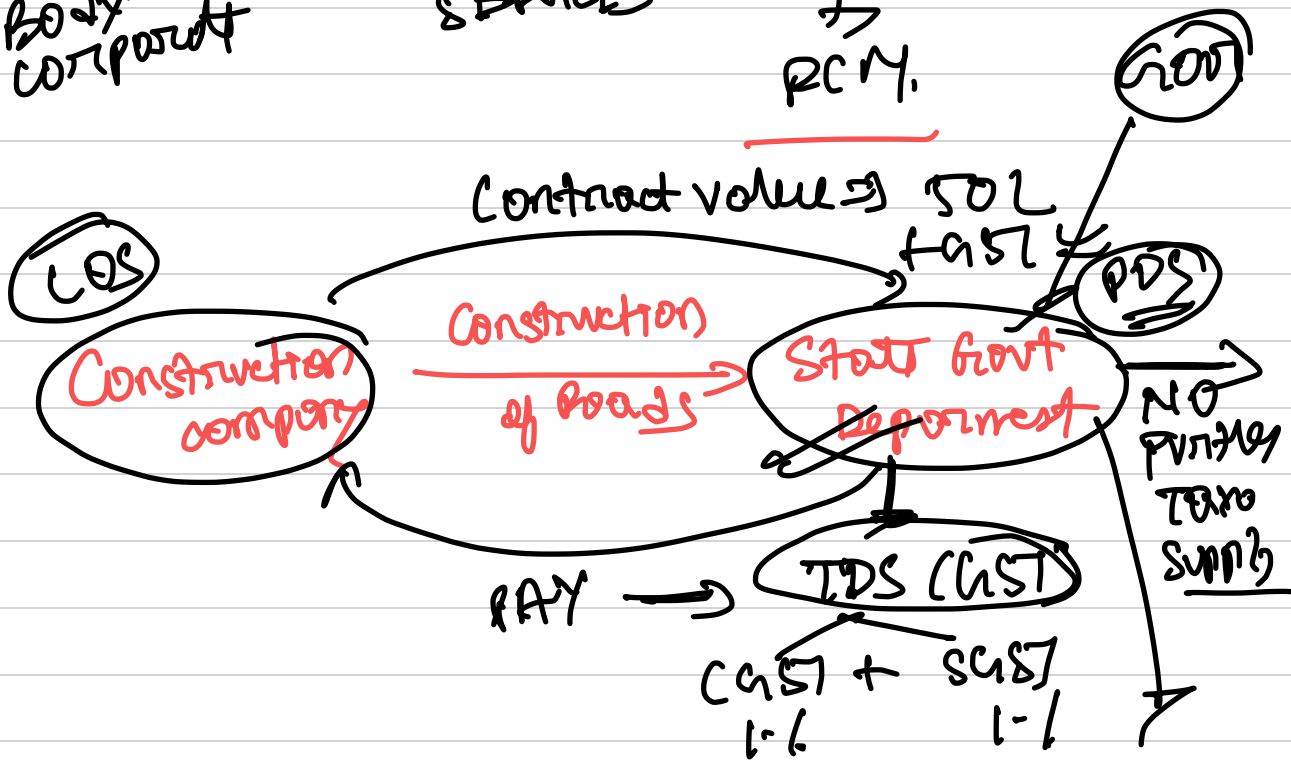 Body
corporate
RCM.
GOVT
Contract value ⇒ 50L
+GST
LOS
POS
Construction
company
Construction
of Roads
State Govt
Deparment
NO
further
Taxo
supply
PAY →
TDS (GST)
CGST + SGST
1-%
1-%